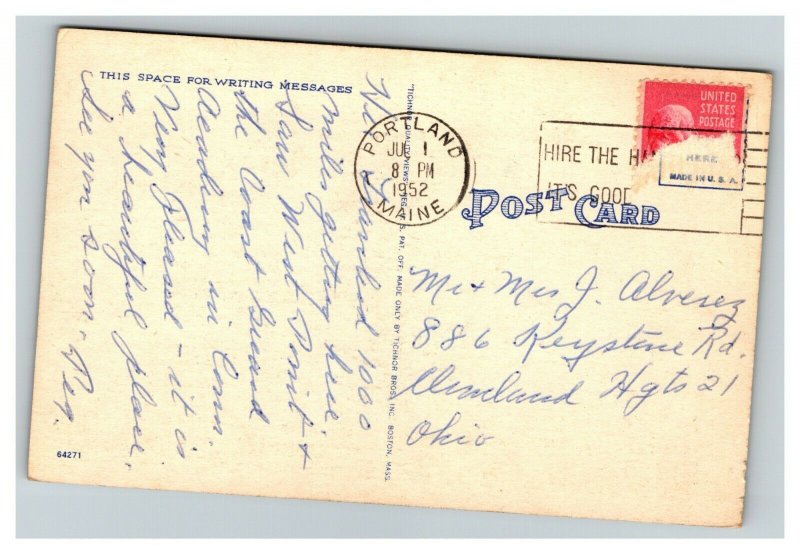 THIS SPACE FOR WRITING MESSAGES
We 1000
miles getting here.
Saw West Point &
the Coast Guard
Academy in Conn.
Very pleased - it is
a beautiful place.
See you soon. Peg.
64271
"TICHNOR QUALITY VIEWS," REG. U. S. PAT. OFF. MADE ONLY BY TICHNOR BROS., INC., BOSTON, MASS.
PORTLAND
JUL 1
8 PM
1952
MAINE
HIRE THE HA
IT'S GOOD
UNITED
STATES
POSTAGE
HERE
MADE IN U. S. A.
POST CARD
Mr & Mrs J. Alverez
886 Keystone Rd.
Cleveland Hgts 21
Ohio